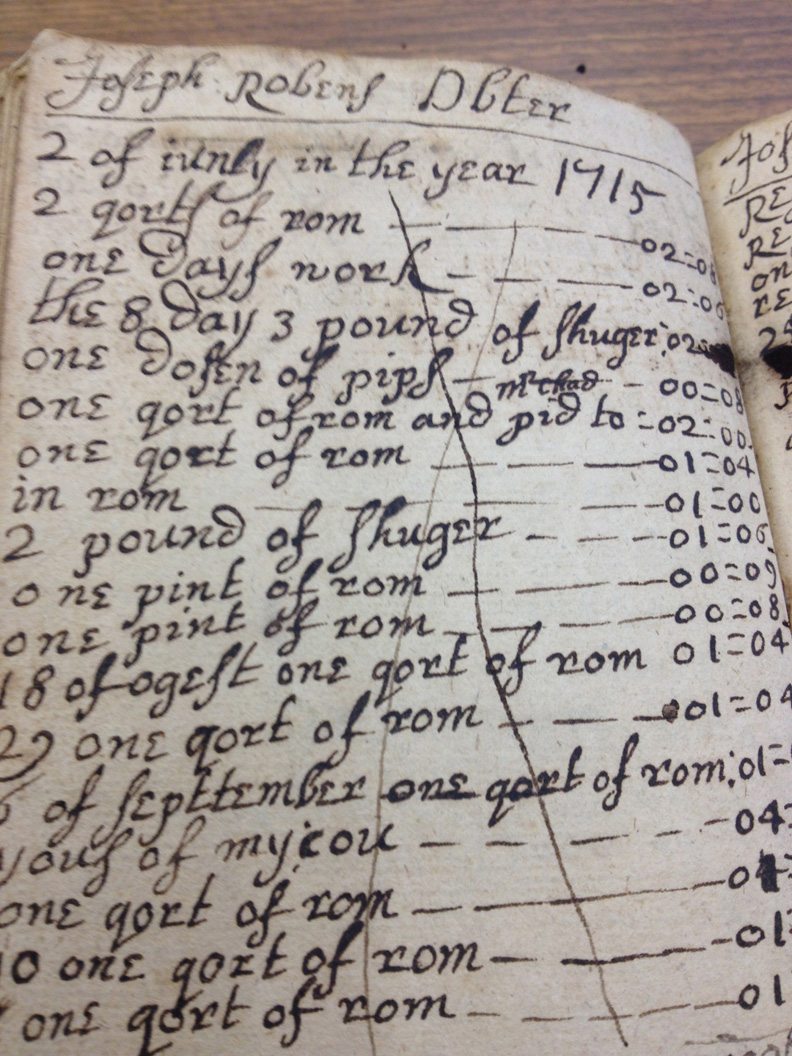 Joseph Robens Dbter
2 of iunly in the year 1715
2 qorts of rom — — — — 02=0
one days work — — — 02=06
the 8 day 3 pound of shuger: 02
one dosen of pips — — 00=08
one qort of rom and pid to =02=00
one qort of rom — — — 01=04
in rom — — — — 01=00
2 pound of shuger — — — 01=06
one pint of rom — — — 00=09
one pint of rom — — — 00=08
18 of ogest one qort of rom 01=04
29 one qort of rom — — — 01=04
of septtember one qort of rom: 01=
yous of my cou — — — — 04=
one qort of rom — — — 0
10 one qort of rom — — — 01
one qort of rom — — — 01
Jos
RE
RE
on
re